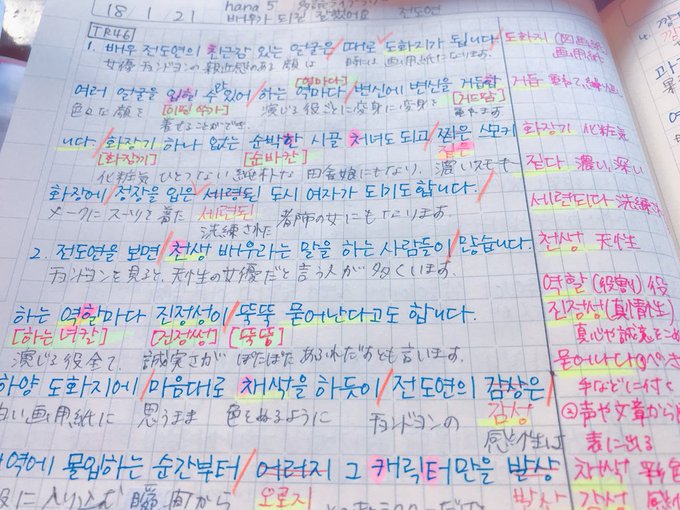 18/1/21 hana 5
배우가 되길 잘했어요 전도연
TR46
1. 배우 전도연의 친근감 있는 얼굴은 때로 도화지가 됩니다.
도화지 (図画紙) 画用紙
女優 チョンドヨンの 親近感のある 顔は 時には 画用紙になります。
여러 얼굴을 입힐 수 있어 하는 역마다 변신에 변신을 거듭합
거듭 重ねて、
[이필쑤가] [영마다] [거드팜]
色々な 顔を 着せることができ 演じる役ごとに 変身に変身を 重ねます
니다. 화장기 하나 없는 순박한 시골 처녀도 되고 짙은 스모키
화장기 化粧気
[화장끼] [순바칸] 짙은
化粧気 ひとつない 純朴な 田舎娘にもなり、濃いスモーキー
짙다 濃い、深い
화장에 정장을 입은 세령된 도시 여자가 되기도 합니다.
세련되다 洗練
メークに スーツを着た 세련된 都師の女にも なります。
洗練された
2. 전도연을 보면 천생 배우라는 말을 하는 사람들이 많습니다.
천생 天性
チョンドヨンを見ると、天性の女優だと言う人が 多くいます。
하는 역할마다 진정성이 뚝뚝 묻어난다고도 합니다.
역할 (役割) 役
진정성 (真情性)
[하는 녀칼] [진정썽] [뚝뚝]
真心や誠意をこめ
演じる役全て、誠実さが ぽたぽた あふれだすとも言います。
묻어나다
하얀 도화지에 마음대로 채색을 하듯이 전도연의 감상은
手などに付く
白い画用紙に 思うまま 色をぬるように チョンドヨンの 감성
②声や文章から
感性は
表に出る
역에 몰입하는 순간부터 어러지 그 캐릭터만을 발상
채색 彩色
役に 入り込む 瞬間から 오로지
발산 감성